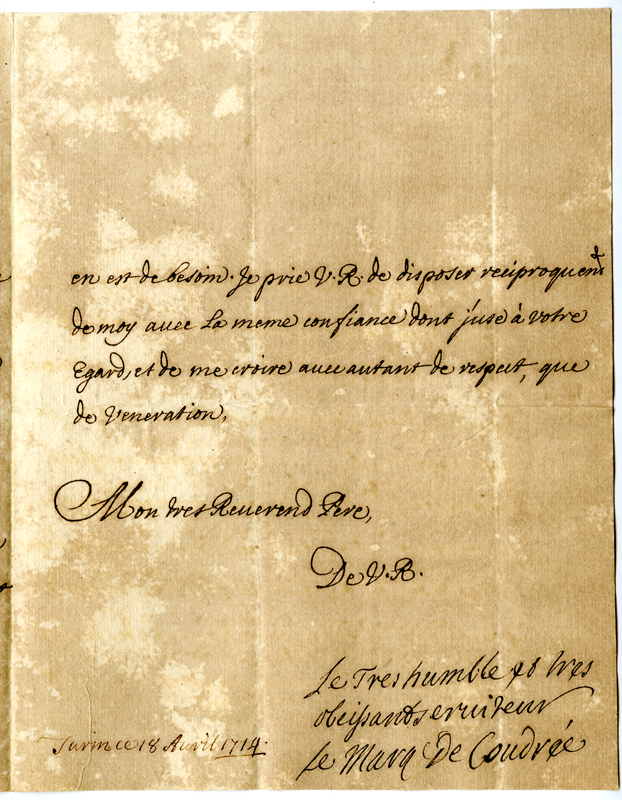 en est de besoin. Je prie V. R. de disposer reciproquem.t
de moy avec La meme confiance dont j'use à votre
Egard, et de me croire avec autant de respect, que
de veneration,
Mon tres Reuerend Pere,
De V. R.
Le Tres humble et tres
obeissant seruiteur
Le Marq De Coudrée
Turin ce 18 Auril 1714.